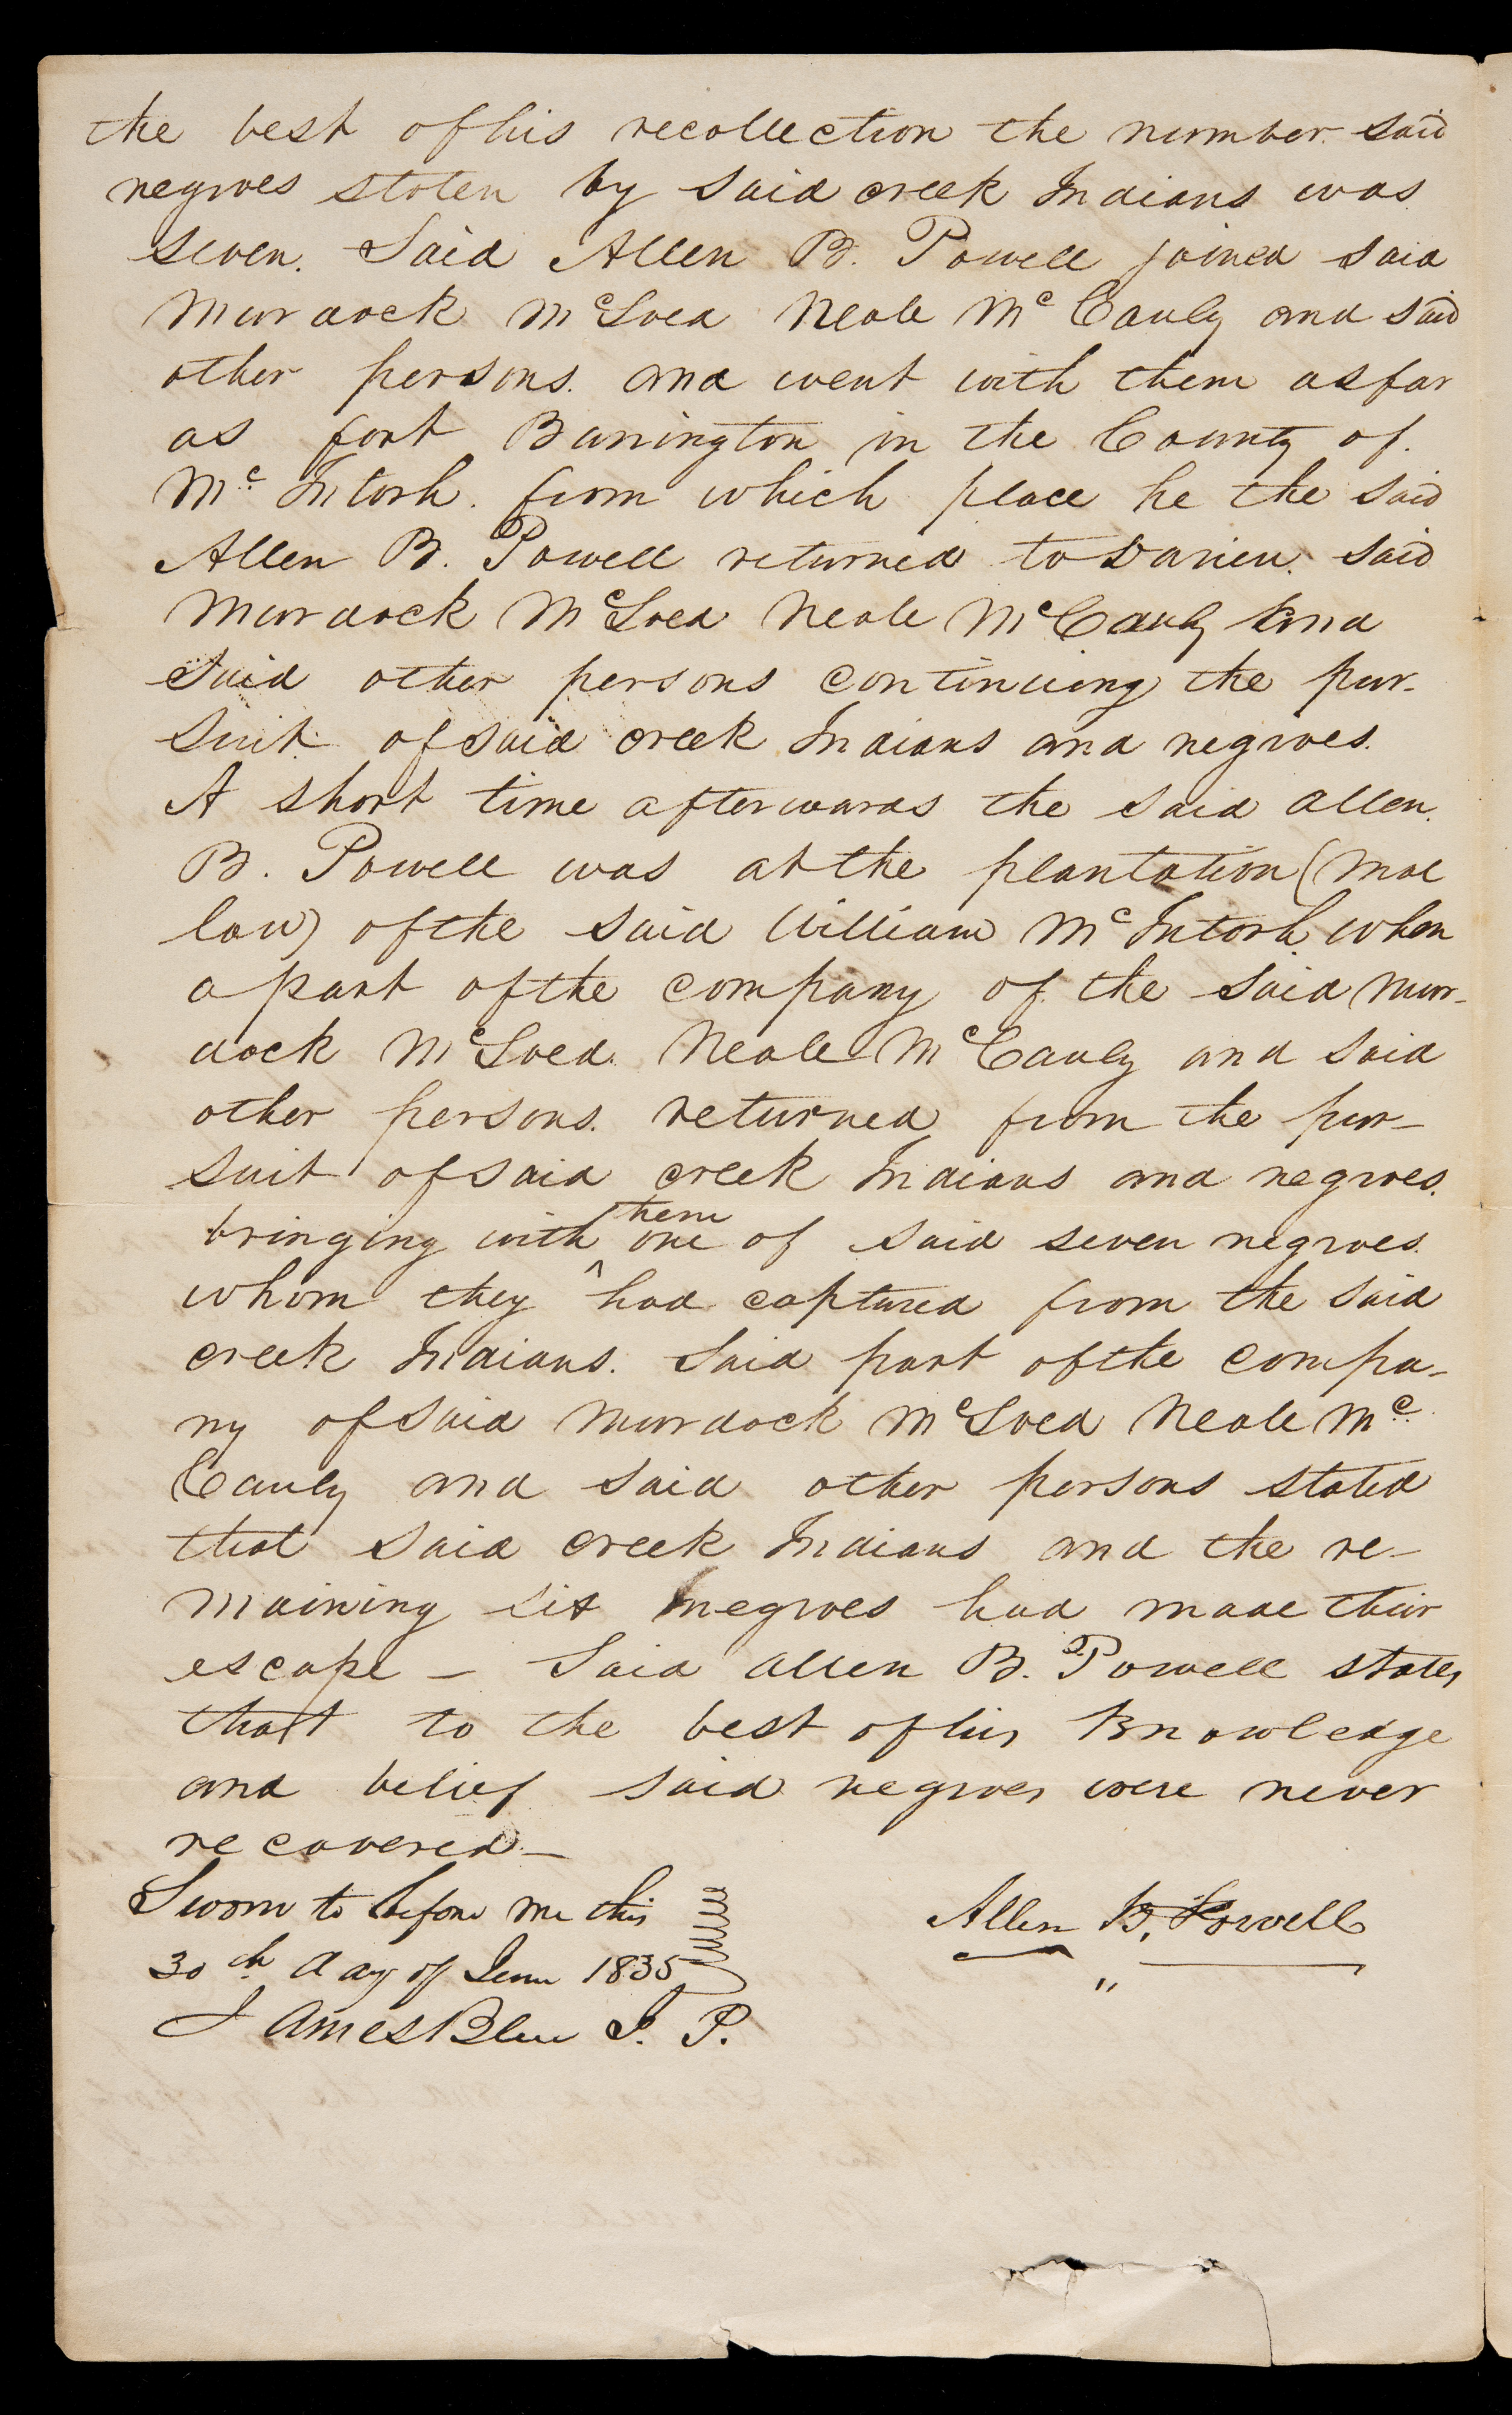 the best of his recollection the number said
negroes stolen by said creek Indians was
seven. Said Allen B. Powell joined said
Murdock McLoed Neale Mc Cauly and said
other persons. and went with them as far
as fort Barrington in the County of.
Mc Intosh. from which place he the said
Allen B. Powell returned to Darien. said
Murdock McLoed Neale McCauly and
said other persons continuing the pur-
suit of said creek Indians and negroes.
A short time afterwards the said Allen.
B. Powell was at the plantation (Mal
low) of the said William McIntosh when
a part of the company of the said Mur-
dock McLoed. Neale McCauly and said
other persons. returned from the pur-
suit of said creek Indians and negroes.
bringing with them one of said seven negroes.
whom they had captured from the said
creek Indians. Said part of the compa-
ny of said Murdock McLoed Neale Mc
Cauly and said other persons stated
that said creek Indians and the re-
maining six negroes had made their
escape - Said Allen B. Powell states
that to the best of his Knowledge
and belief said negroes were never
recovered -
Sworn to before me this
30th day of June 1835
James Blue J. P.
Allen B. Powell